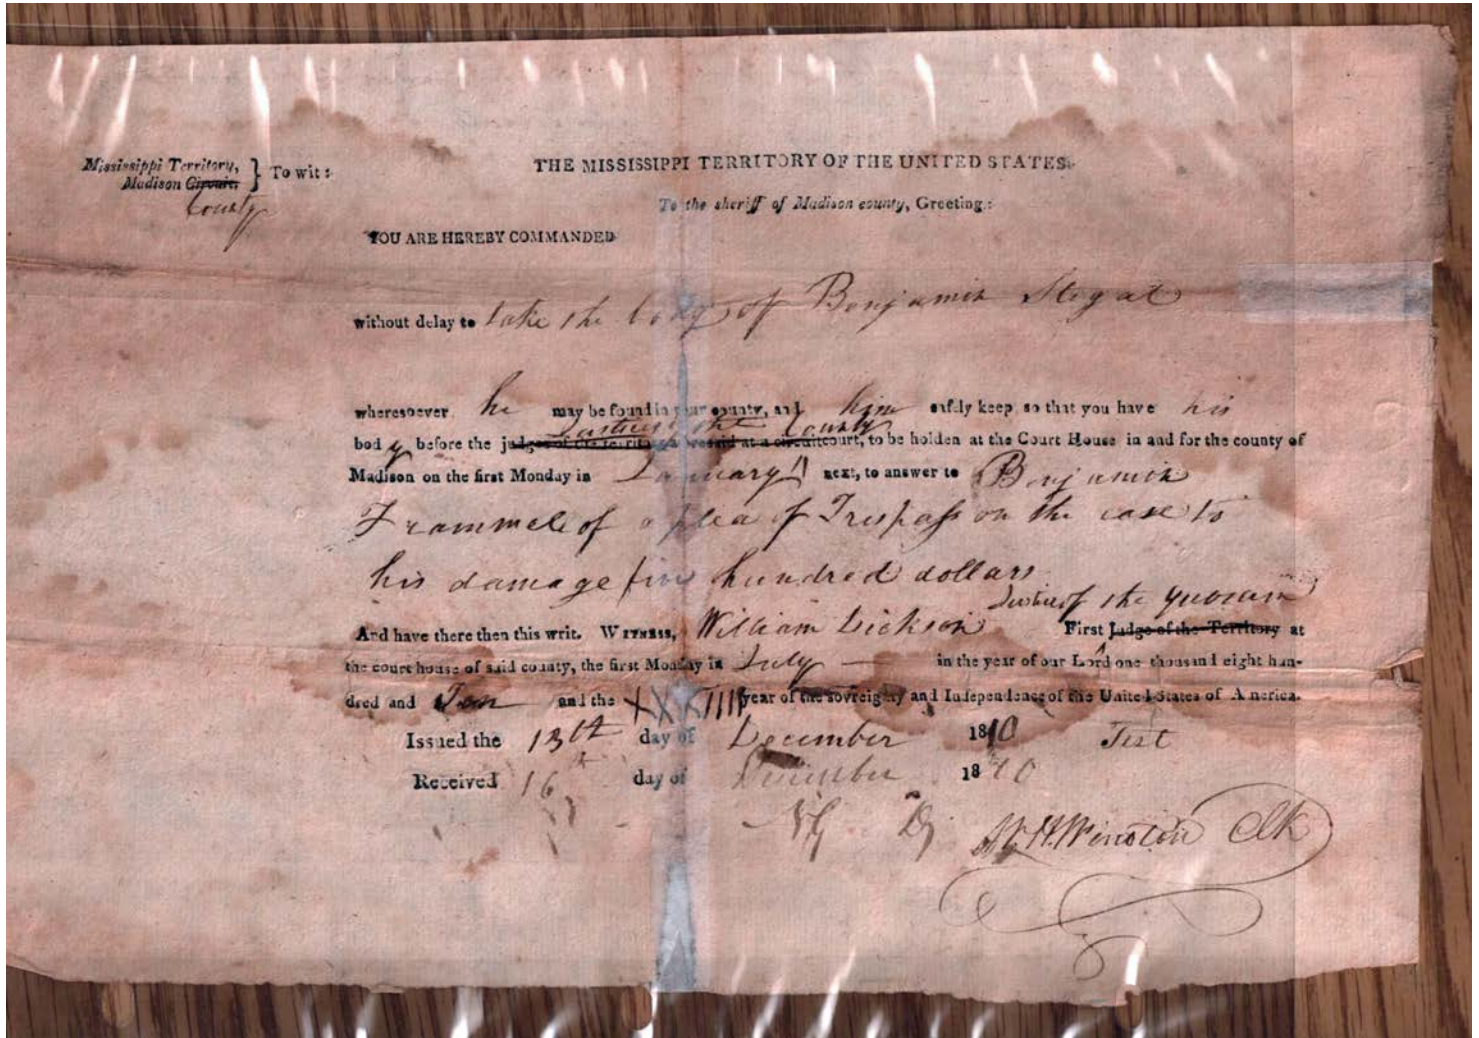 Mississippi Territory, } To wit:
Madison Circuit.
County
THE MISSISSIPPI TERRITORY OF THE UNITED STATES.
To the sheriff of Madison county, Greeting:
YOU ARE HEREBY COMMANDED
without delay to take the body of Benjamin Stogat
wheresoever he may be found in your county, and him safely keep, so that you have his
Justices of the County
body before the judges of the territory aforesaid at a circuit court, to be holden at the Court House in and for the county of
Madison on the first Monday in January next, to answer to Benjamin
Frammele of a plea of Trespass on the case to
his damage five hundred dollars
Justice of the quoram
And have there then this writ. WITNESS, William Dickson First Judge of the Territory at
the court house of said county, the first Monday in July in the year of our Lord one thousand eight hun-
dred and Ten and the XXXIIII year of the sovreignty and Independence of the United States of America.
Issued the 13th day of December 1810 Test
Received 16 day of December 1810
W. H. Winston Clk